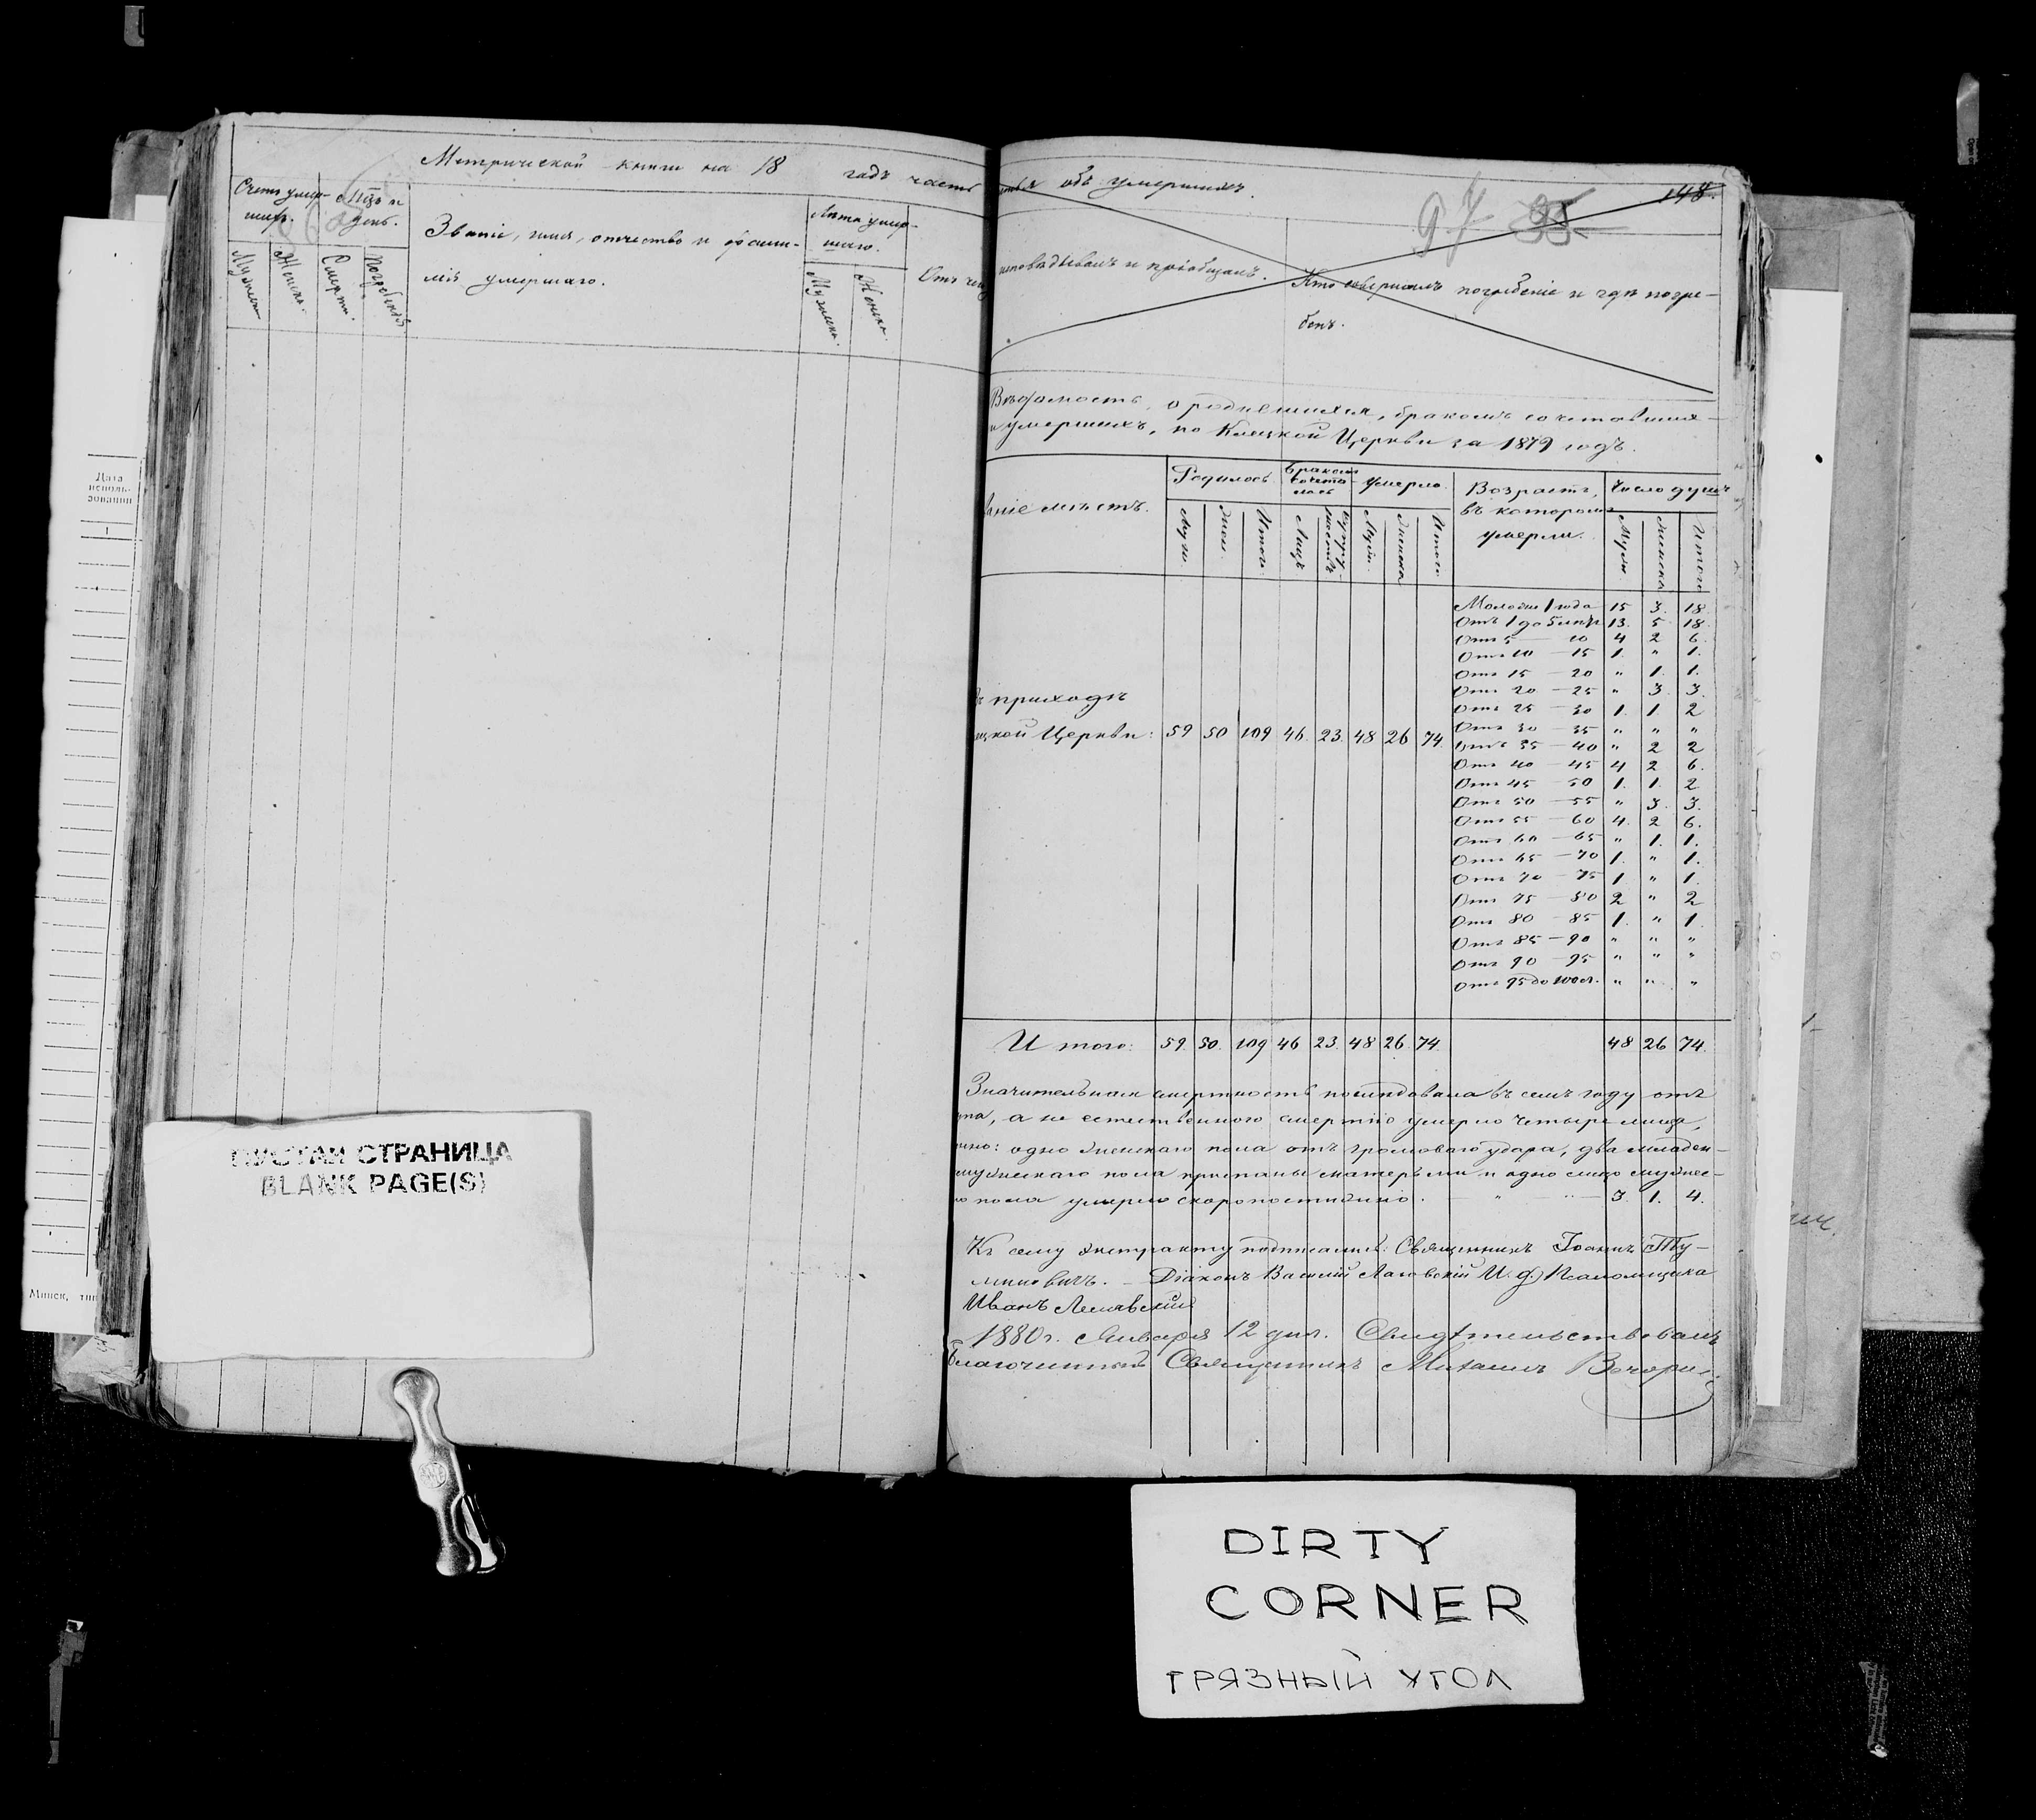 Метрической книги на 18 годъ часть
Счетъ умер-
шихъ.
Мцъ и
день.
Званіе, имя, отчество и фами-
лія умершаго.
Лѣта умер-
шаго.
Отъ чего
Мужеск.
Женск.
Смерти.
Погребенія
Мужеск.
Женск.
объ умершихъ.
148.
97 95
исповѣдывалъ и пріобщалъ.
Кто совершалъ погребеніе и гдѣ погре-
бенъ.
Вѣдомость, о родившихся, бракомъ сочетавшихся
и умершихъ, по Клецкой Церкви за 1879 годъ.
Родилось
Умерло
Возрастъ,
въ которомъ
умерли.
Число душъ
Муж.
Жен.
Итого
Лицъ
Супру-
жествъ
Муж.
Женска
Итого
Муж.
Женска
Итого
Моложе 1 года 15 3. 18.
Отъ 1 до 5 лѣтъ 13. 5 18.
Отъ 5 — 10 4 2 6.
Отъ 10 — 15 1. " 1.
Отъ 15 — 20 " 1. 1.
Отъ 20 — 25 " 3. 3.
Отъ 25 — 30 1. 1. 2
Отъ 30 — 35 " " "
Отъ 35 — 40 " 2 2
Отъ 40 — 45 4 2 6.
Отъ 45 50 1. 1. 2
Отъ 50 — 55 " 3. 3.
Отъ 55 — 60 4. 2 6.
Отъ 60 — 65 " 1. 1.
Отъ 65 — 70 1. " 1.
Отъ 70 — 75 1. " 1.
Отъ 75 — 80 2 " 2
Отъ 80 85 1. " 1.
Отъ 85 — 90 " " "
Отъ 90 — 95 " " "
Отъ 95 до 100 л. " " "
приходѣ
Церкви: 59 50 109 46. 23. 48 26 74.
Итого: 59. 50. 109 46 23. 48 26. 74. 48 26 74.
Значительная смертность послѣдовала въ семъ году отъ
а не естественною смертію умерло четыре лица,
одно женскаго пола отъ громоваго удара, два младен-
мужескаго пола приспаны матерьми и одно лицо мужес-
пола умерло скоропостижно. — " — 3. 1. 4.
Къ сему экстракту подписались: Священникъ Іоаннъ Ту-
миновичъ. — Діаконъ Василій Лаговскій И. д. Псаломщика
Иванъ
1880 г. Января 12 дня. Свидѣтельствовалъ
Благочинный Священникъ Михаилъ
Дата
исполь-
зования
Минск, тип
ПУСТАЯ СТРАНИЦА
BLANK PAGE(S)
DIRTY
CORNER
ГРЯЗНЫЙ УГОЛ